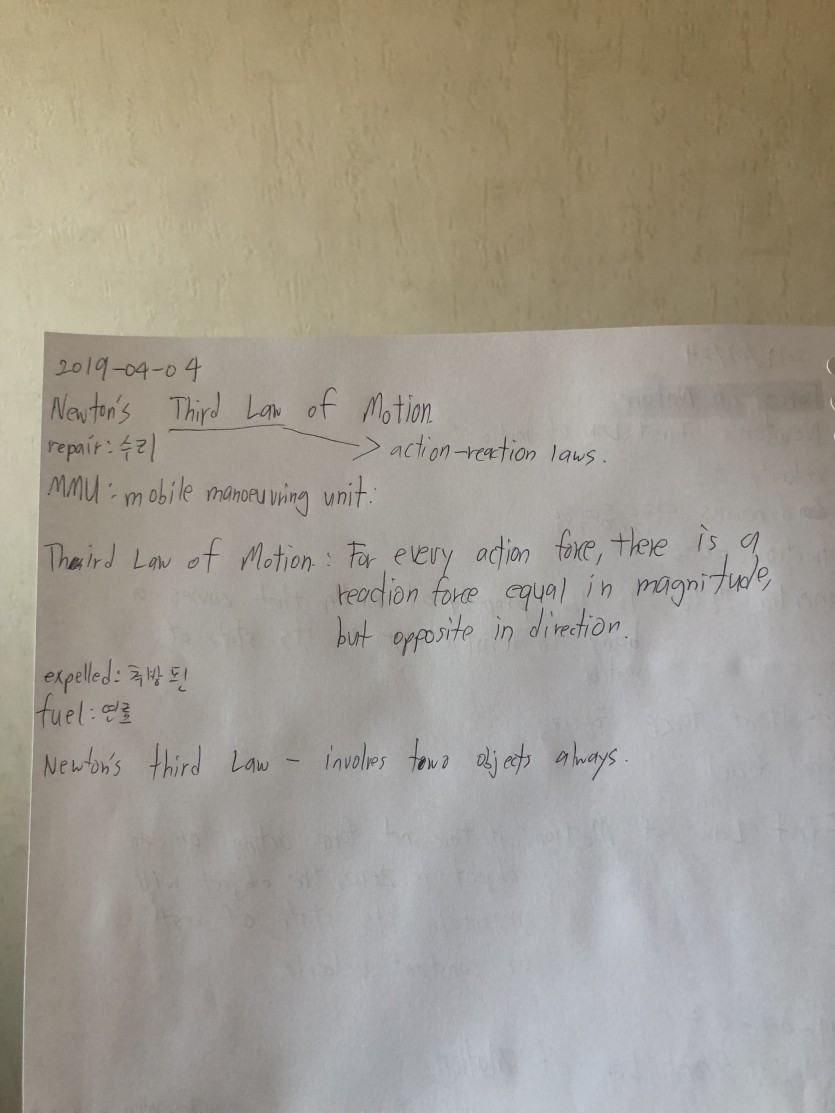 2019-04-04
Newton's Third Law of Motion
repair: 수리 > action-reaction laws.
MMU: mobile manoeuvring unit.
Thaird Law of Motion: For every action force, there is a
reaction force equal in magnitude,
but opposite in direction.
expelled: 추방 된
fuel: 연료
Newton's third Law - involves two objects always.